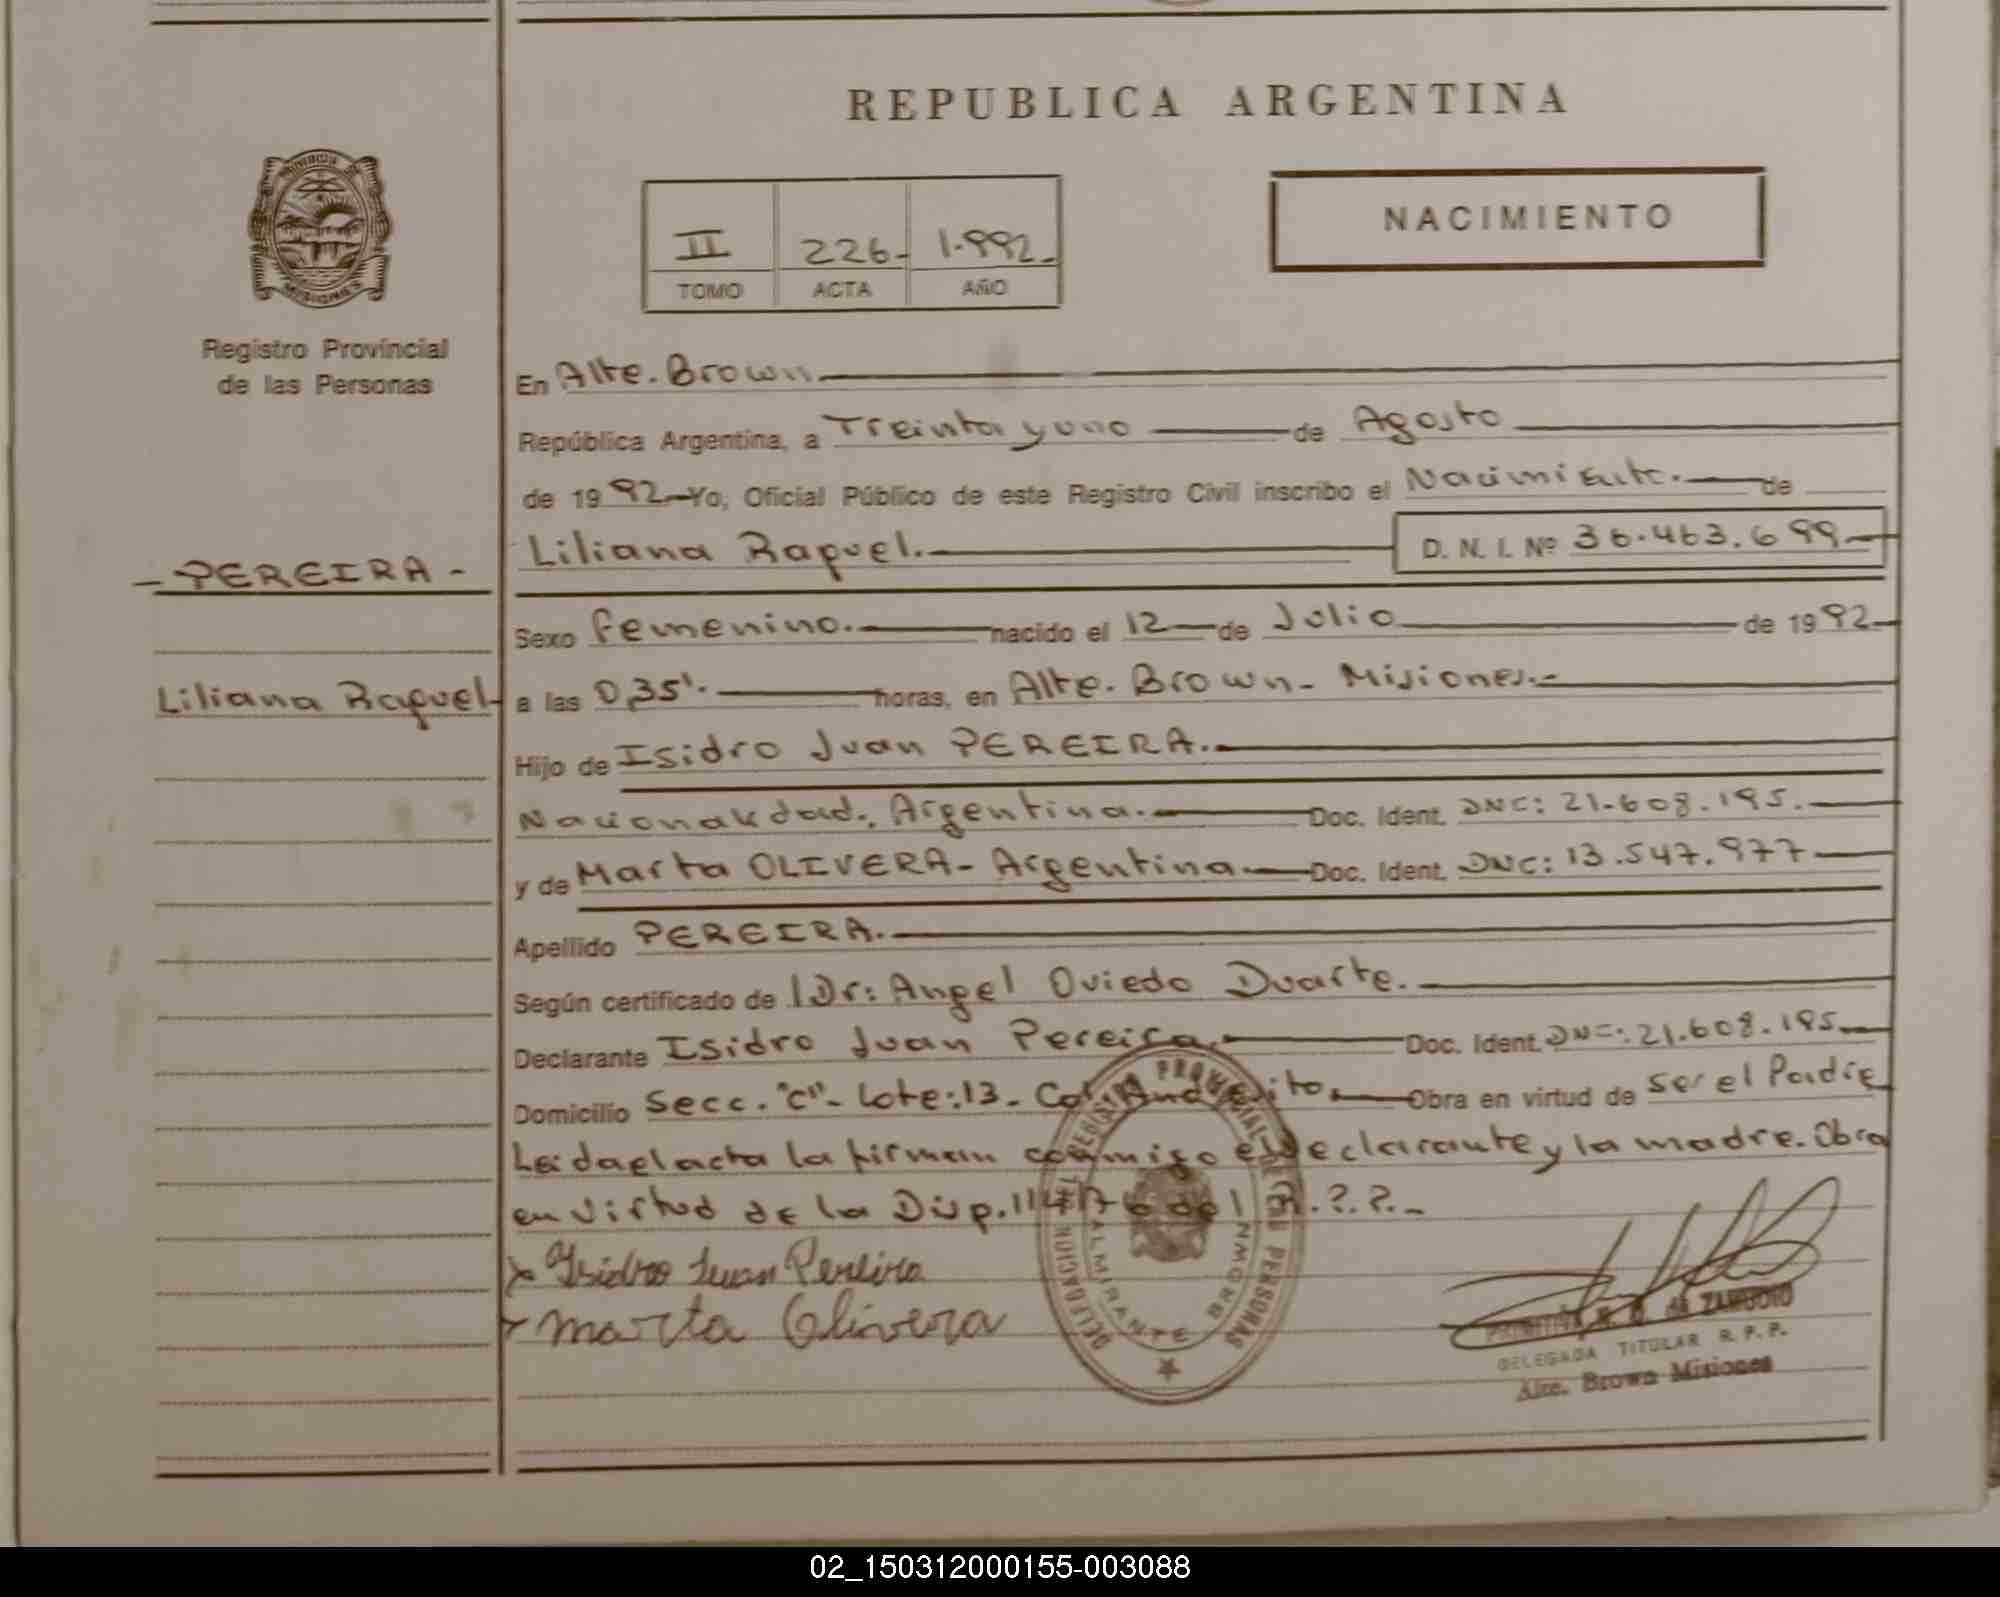 REPUBLICA ARGENTINA
PROVINCIA DE
MISIONES
Registro Provincial
de las Personas
II 226- 1.992-
TOMO ACTA AÑO
NACIMIENTO
En Alte. Brown
República Argentina, a Treinta y uno de Agosto
de 1992 Yo, Oficial Público de este Registro Civil inscribo el Nacimiento. de
Liliana Raquel. D. N. I. Nº 36.463.699
- PEREIRA -
Liliana Raquel
Sexo femenino. nacido el 12 de Julio de 1992
a las 0,35'. horas, en Alte. Brown - Misiones.-
Hijo de Isidro Juan PEREIRA.
Nacionalidad. Argentina. Doc. Ident. DNC: 21.608.195.
y de Marta OLIVERA - Argentina. Doc. Ident. DNC: 13.547.977
Apellido PEREIRA.
Según certificado de Dr: Angel Oviedo Duarte.
Declarante Isidro Juan Pereira. Doc. Ident. DNC: 21.608.195
Domicilio Secc. "C" - Lote: 13 - Col. Andresito. Obra en virtud de ser el Padre
Leida el acta la firman conmigo el declarante y la madre. Obra
en virtud de la Disp. 114/76 del R.P.P.-
x Isidro Juan Pereira
x Marta Olivera
DELEGACION DEL REGISTRO PROVINCIAL DE LAS PERSONAS
ALMIRANTE BROWN
de ZAMUDIO
DELEGADA TITULAR R. P. P.
Alte. Brown Misiones
02_150312000155-003088